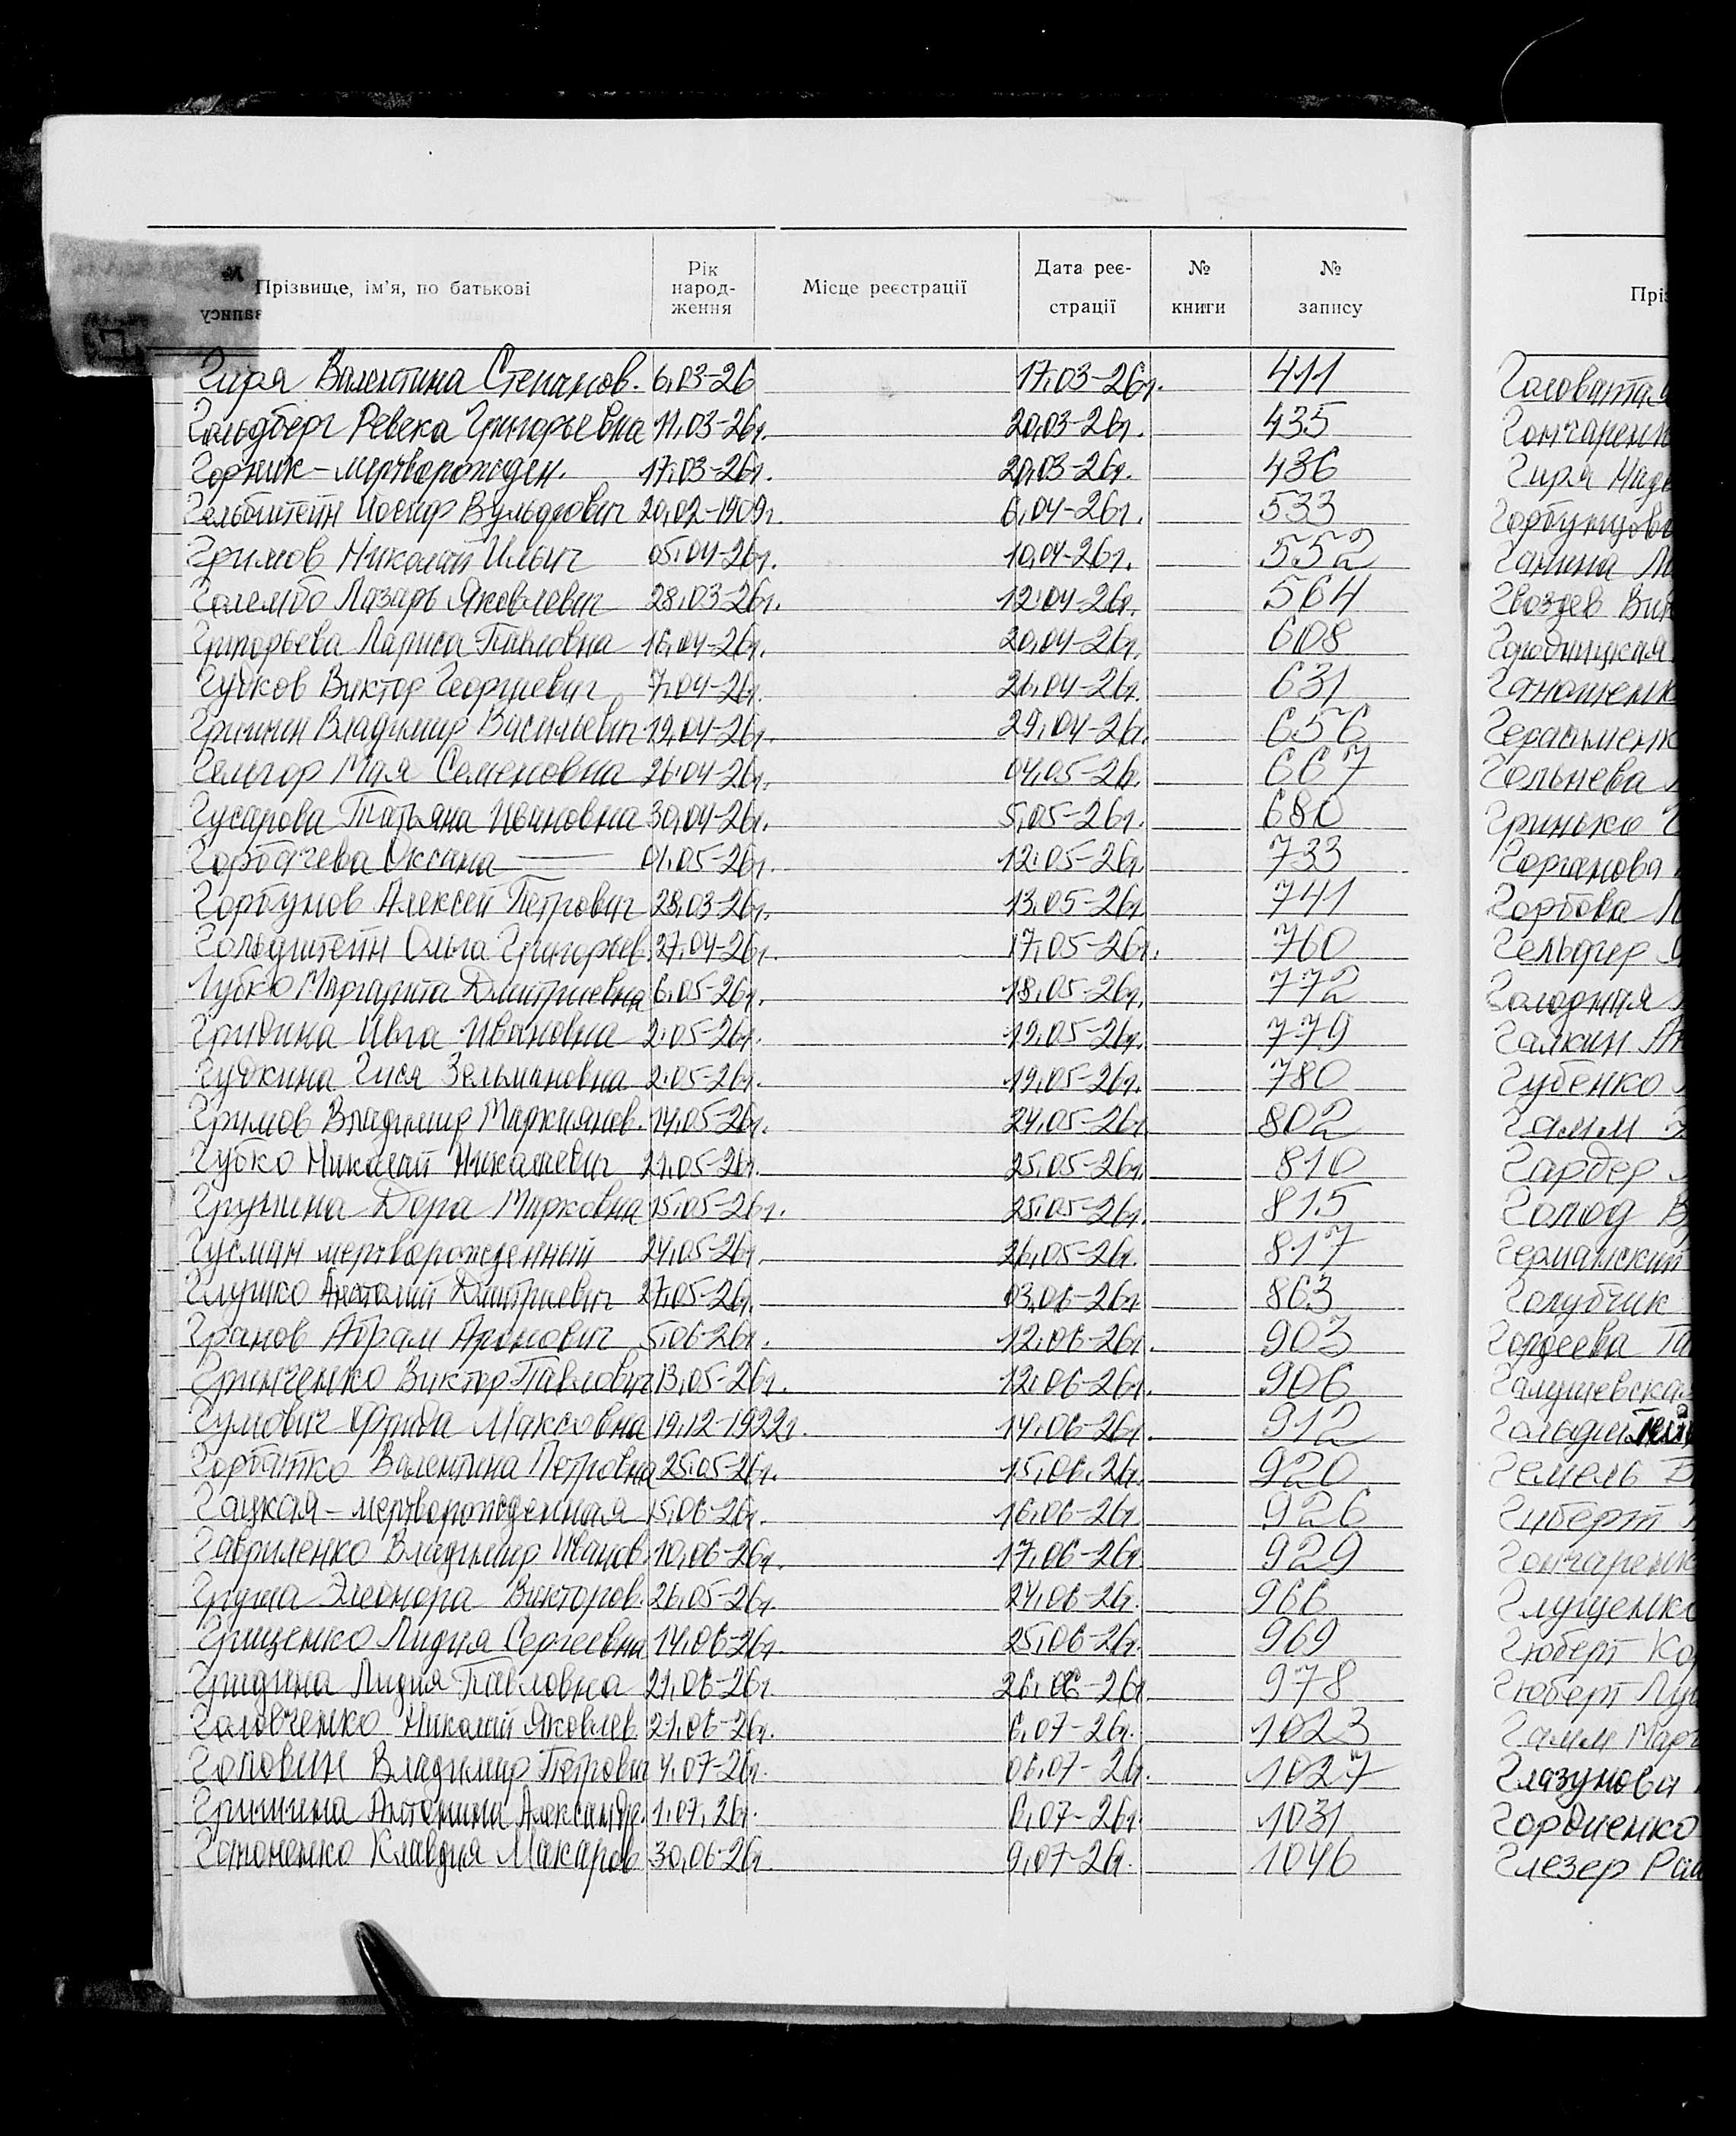 № запису
Прізвище, ім'я, по батькові Рік народ-ження Місце реєстрації Дата реє-страції № книги № запису
Гиря Валентина Степанов. 6.03-26 17.03-26г. 411
Гольдберг Ревека Григорьевна 11.03-26г. 20.03-26г. 435
Горник - мертворожден. 17.03-26г. 20.03-26г. 436
Гельбштейн Иосиф Вульфович 20.02-1909г. 6.04-26г. 533
Гримов Николай Ильич 05.04-26г. 10.04-26г. 552
Голембо Лазарь Яковлевич 28.03-26г. 12.04-26г. 564
Григорьева Лариса Павловна 16.04-26г. 20.04-26г. 608
Гудков Виктор Георгиевич 7.04-26г. 26.04-26г. 631
Гришин Владимир Васильевич 19.04-26г. 29.04-26г. 656
Мая Семеновна 26.04-26г. 04.05-26г. 667
Гусарова Татьяна Ивановна 30.04-26г. 5.05-26г. 680
Горбачева Оксана — 01.05-26г. 12.05-26г. 733
Горбунов Алексей Петрович 28.03-26г. 13.05-26г. 741
Гольдштейн Ольга Григорьев. 27.04-26г. 17.05-26г. 760
Губко Маргарита Дмитриевна 6.05-26г. 18.05-26г. 772
Гридина Ивга Ивановна 2.05-26г. 19.05-26г. 779
Гудкина Гися Зельмановна 2.05-26г. 19.05-26г. 780
Гримов Владимир Маркиянов. 14.05-26г. 24.05-26г. 802
Губко Николай Николаевич 21.05-26г. 25.05-26г. 810
Грунина Дора Марковна 15.05-26г. 25.05-26г. 815
Гусман мертворожденный 24.05-26г. 26.05-26г. 817
Глушко Анатолий Дмитриевич 27.05-26г. 03.06-26г 863
Гранов Абрам Аронович 5.06-26г. 12.06-26г. 903
Гринченко Виктор Павлович 13.05-26г. 12.06-26г. 906
Гумович Фрида Максовна 19.12-1922г. 14.06-26г. 912
Горбатко Валентина Петровна 25.05-26г. 15.06.26г. 920
Гацкая - мертворожденная 15.06-26г. 16.06-26г. 926
Гавриленко Владимир Иванов. 10.06-26г. 17.06-26г 929
Груша Элеонора Викторов. 26.05-26г. 24.06-26г. 966
Грищенко Лидия Сергеевна 14.06-26г. 25.06-26г. 969
Гридина Лидия Павловна 21.06-26г. 26.06-26г 978
Головченко Николай Яковлев. 21.06-26г. 6.07-26г. 1023
Головин Владимир Петрович 4.07-26г. 06.07-26г. 1027
Гришина Антонина Александр. 1.07.26г. 6.07-26г. 1031
Гапоненко Клавдия Макаров 30.06-26г. 9.07-26г. 1046
Гончаренк
Гиря
Ганина
Гвоздев
Городницкая
Герасименк
Гольнева
Гринько
Горбова
Галкин
Губенко
Гамм
Гарбер
Голод
Германский
Голубчик
Гордеева
Галушевская
Гемель
Гиберт
Гончаренк
Глущенко
Гюберт
Гюберт
Гамм
Глазунова
Гордиенко
Глезер